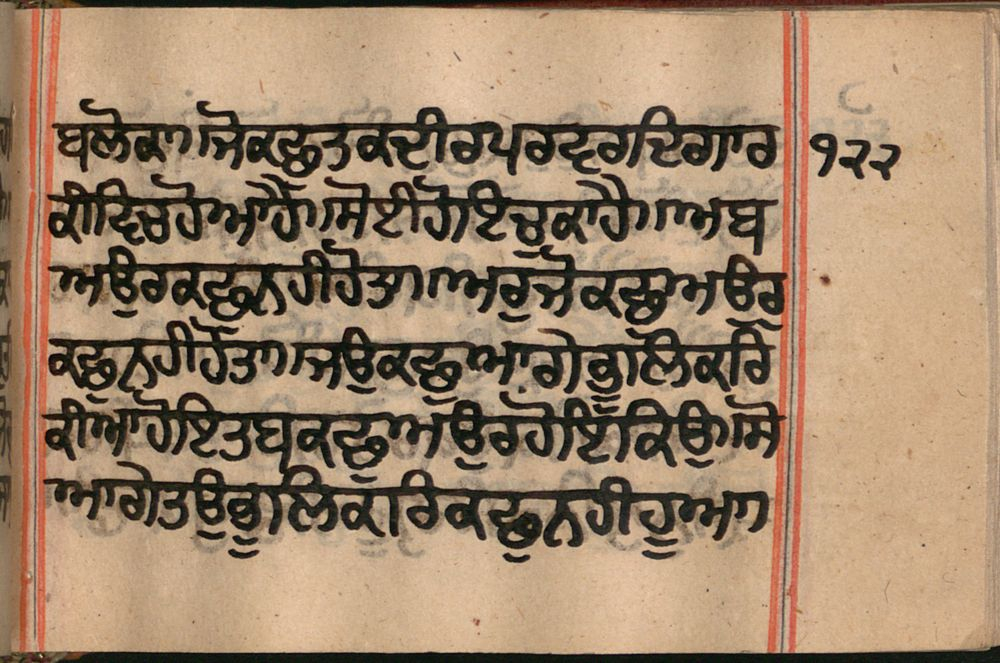 ਬਲੋਕਾ।ਜੋਕਛੁਤਕਦੀਰਪਰਵਰਦਿਗਾਰ ੧੨੨
ਕੀਵਿਚਹੋਆਹੈ।ਸੋਈਹੋਇਚੁਕਾਹੈ।ਅਬ
ਅਉਰਕਛੁਨਹੀਹੋਤਾ।ਅਰੁਜੋਕਛੁਅਉਰੁ
ਕਛੁਨਹੀਹੋਤਾ।ਜਉਕਛੁਆਗੇਭੂਲਿਕਰਿ
ਕੀਆਹੋਇਤਬਕਛੁਅਉਰਹੋਇਕਿਉ।ਸੋ
ਆਗੇਤਉਭੂਲਿਕਰਿਕਛੁਨਹੀਹੁਆ।